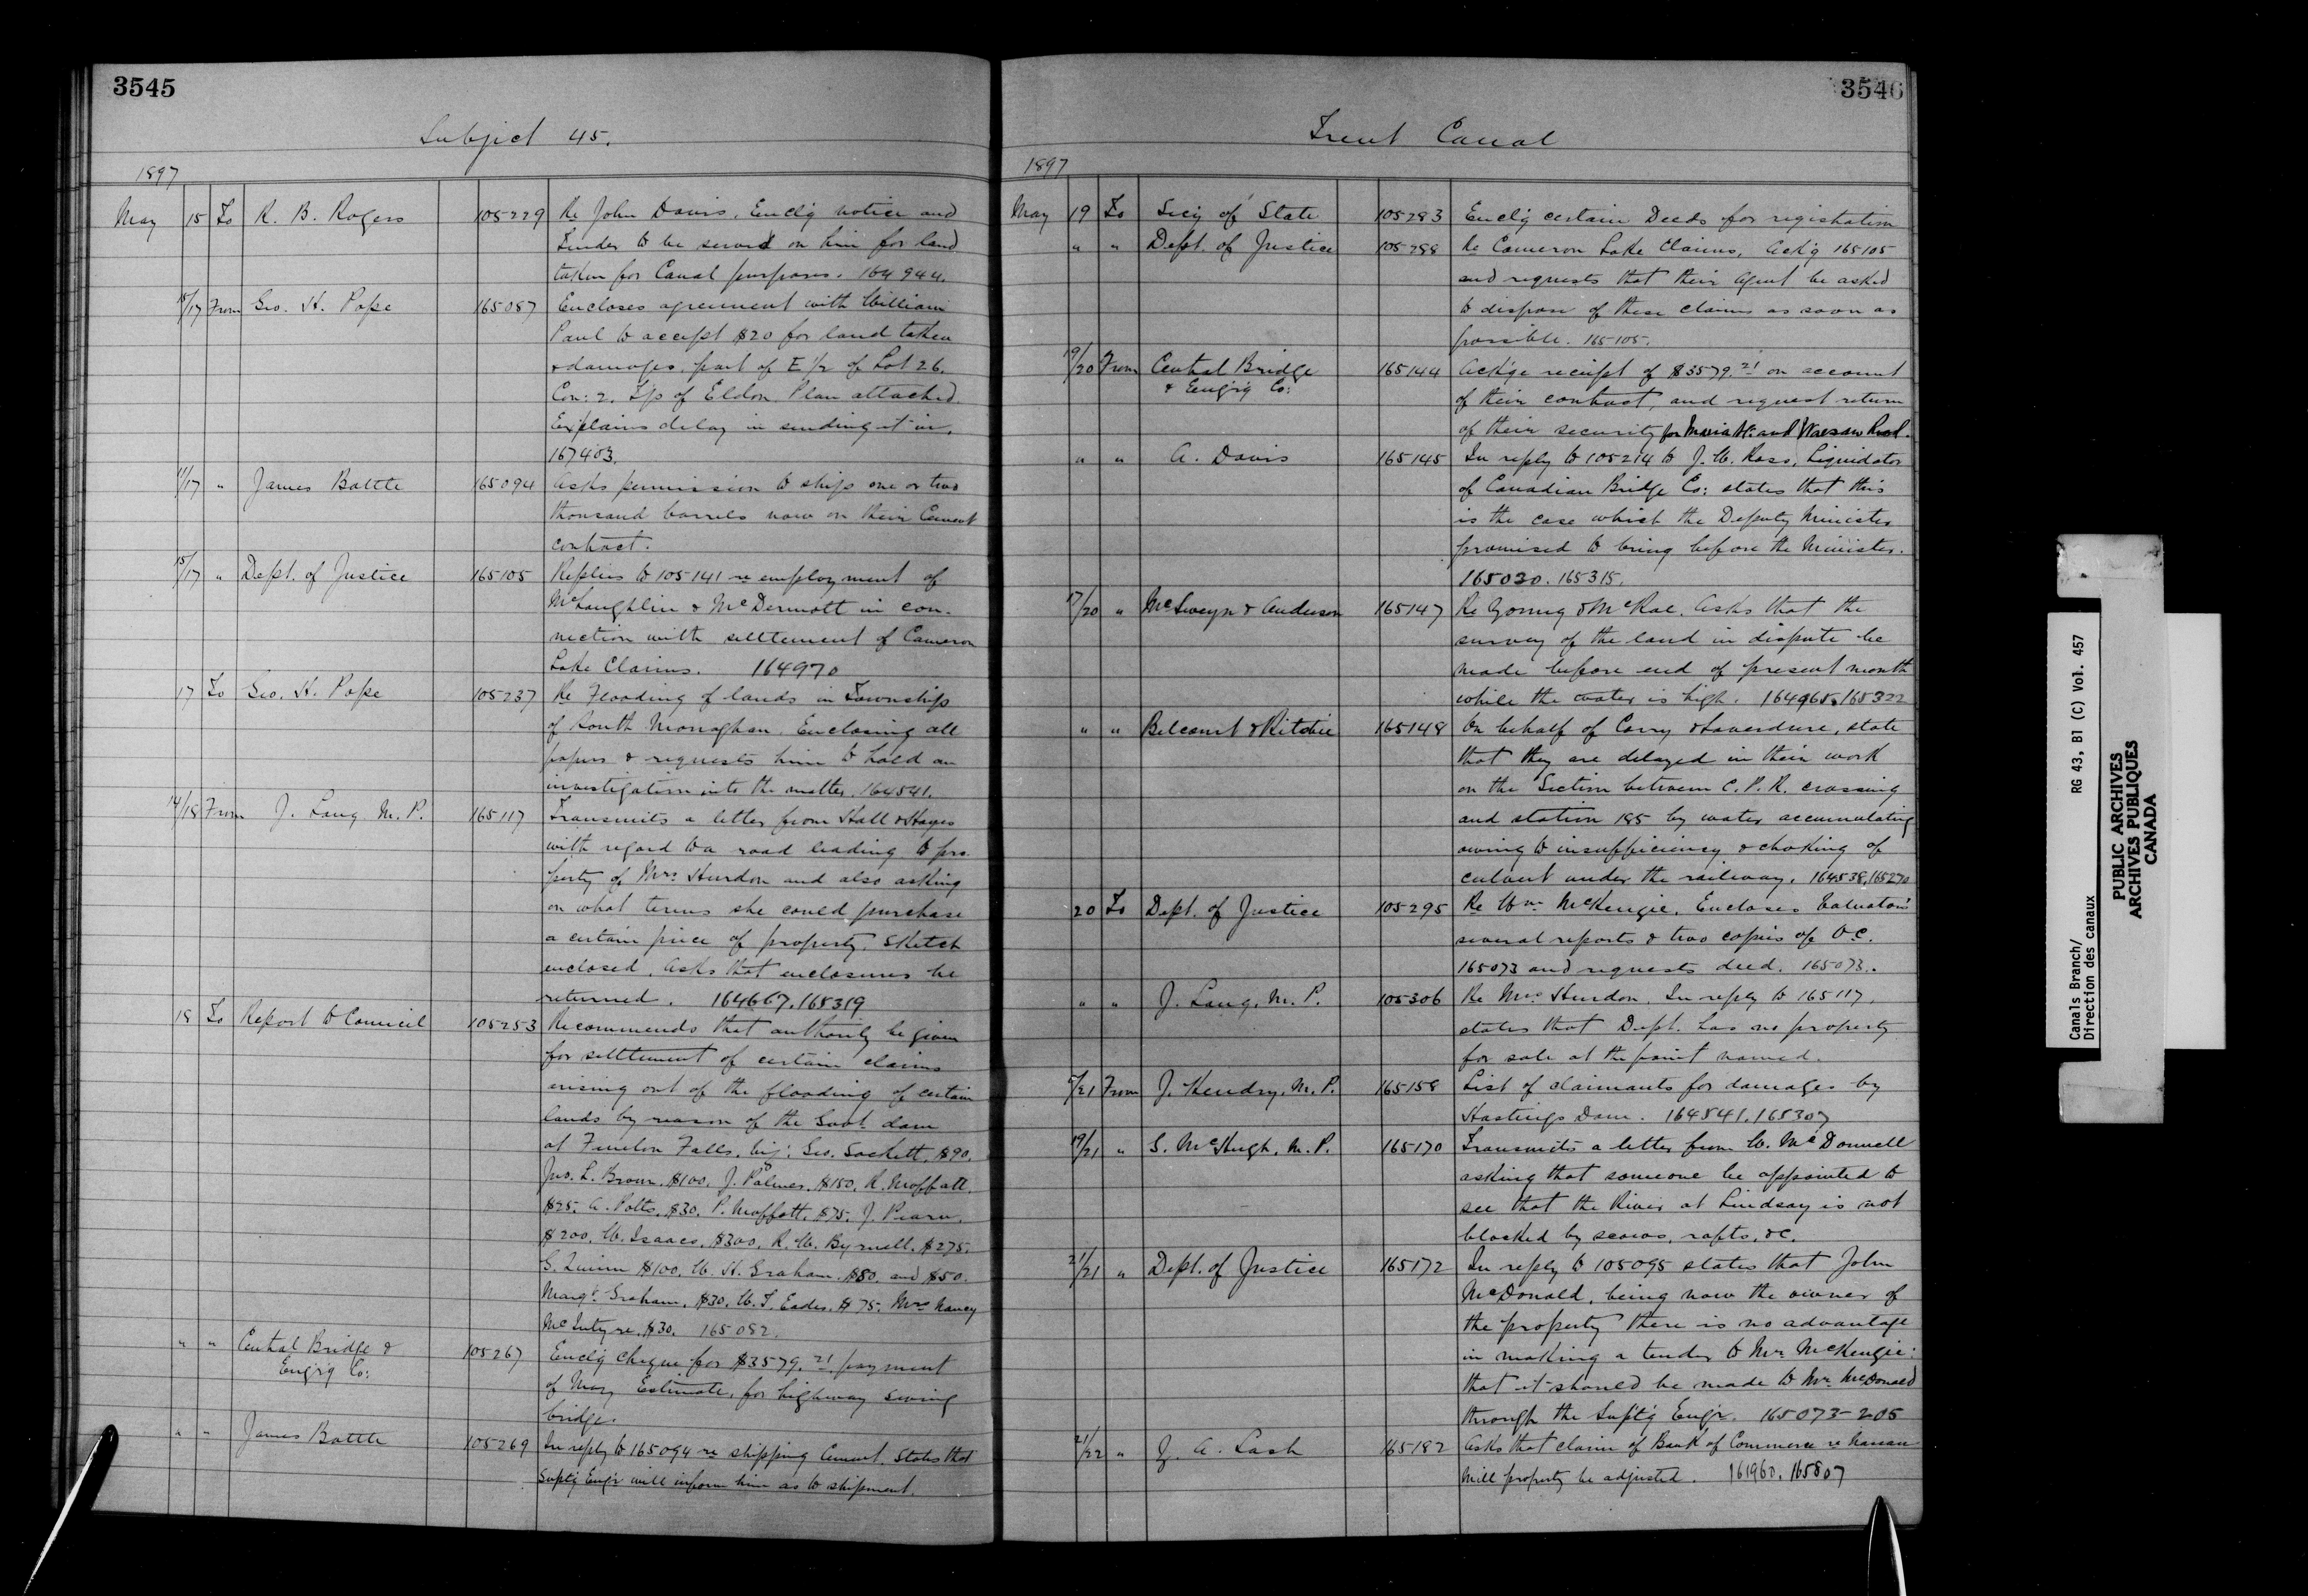 3545
Subject 45.
1897
May 15 To R. B. Rogers 105229 Re John Davis. Encl'g notice and
Tender to be served on him for land
taken for Canal purposes. 164944.
15/17 From Geo. H. Pope 165087 Encloses agreement with William
Paul to accept $20 for land taken
& damages, part of E 1/2 of Lot 26.
Con: 2. T'p of Eldon. Plan attached.
Explains delay in sending it in.
167403.
11/17 " James Battle 165094 Asks permission to ship one or two
thousand barrels now on their Cement
contract.
15/17 " Dept. of Justice 165105 Replies to 105141 re employment of
McLaughlin & McDermott in con-
nection with settlement of Cameron
Lake Claims. 164970
17 To Geo. H. Pope 105237 Re Flooding of lands in Township
of South Monaghan. Enclosing all
papers & requests him to hold an
investigation into the matter. 164541.
14/18 From J. Lang M.P. 165117 Transmits a letter from Hall & Hayes
with regard to a road leading to pro-
perty of Mrs Hurdon and also asking
on what terms she could purchase
a certain piece of property. Sketch
enclosed. Asks that enclosures be
returned. 164667. 165319
18 To Report to Council 105253 Recommends that authority be given
for settlement of certain claims
arising out of the flooding of certain
lands by reason of the Govt dam
at Fenelon Falls, viz: Geo. Sackett, $90.
Jno. L. Brown, $100, J. Palmer, $150, R. Moffatt,
$25, A. Potts, $30, P. Moffatt, $75, J. Pearn,
$200, W. Isaacs, $300, R. W. Byrnell, $275,
G. Quinn $100, W. H. Graham, $80, and $50.
Margt Graham, $30, W. T. Eades, $75, Mrs Nancy
McIntyre, $30. 165082.
" " Central Bridge & 105267 Encl'g Cheque for $3579.21 payment
Eng'r'g Co: of May Estimate, for highway swing
bridge.
" " James Battle 105269 In reply to 165094 re shipping Cement. States that
Supt'g Eng'r will inform him as to shipment.
3546
Trent Canal
1897
May 19 To Sec'y of State 105283 Encl'g certain Deeds for registration
" " Dept. of Justice 105288 Re Cameron Lake Claims, Ack'g 165105
and requests that their Agent be asked
to dispose of these claims as soon as
possible. 165105.
19/20 From Central Bridge 165144 Ack'ge receipt of $3579.21 on account
& Eng'r'g Co: of their contract, and request return
of their security for Maria St: and Warsaw Road.
" " A. Davis 165145 In reply to 105214 to J. W. Ross, Liquidator
of Canadian Bridge Co: states that this
is the case which the Deputy Minister
promised to bring before the Minister.
165030. 165315.
17/20 " McSweyn & Anderson 165147 Re Young & McRae. Asks that the
survey of the land in dispute be
made before end of present month
while the water is high. 164965. 165322
" " Belcourt & Ritchie 165148 On behalf of Corry & Laverdure, state
that they are delayed in their work
on the Section between C. P. R. crossing
and station 185 by water accumulating
owing to insufficiency & choking of
culvert under the railway. 164538, 165270
20 To Dept. of Justice 105295 Re Wm McKenzie. Encloses Valuators'
several reports & two copies of O.C.
165073 and requests deed. 165073.
" " J. Lang, M.P. 105306 Re Mrs Hurdon. In reply to 165117,
states that Dept. has no property
for sale at the point named.
/21 From J. Hendry, M.P. 165158 List of claimants for damages by
Hastings Dam. 164541. 165307
19/21 " G. McHugh, M.P. 165170 Transmits a letter from W. McDonnell
asking that someone be appointed to
see that the River at Lindsay is not
blocked by scows, rafts, &c.
21/21 " Dept. of Justice 165172 In reply to 105095 states that John
McDonald, being now the owner of
the property there is no advantage
in making a tender to Mr. McKenzie:
that it should be made to Mr. McDonald
through the Supt'g Eng'r. 165073-205
21/22 " Z. A. Lash 165182 Asks that claim of Bank of Commerce re Nassau
Mill property be adjusted. 161960. 165807
Canals Branch/
Direction des canaux
RG 43, B1 (C) Vol. 457
PUBLIC ARCHIVES
ARCHIVES PUBLIQUES
CANADA